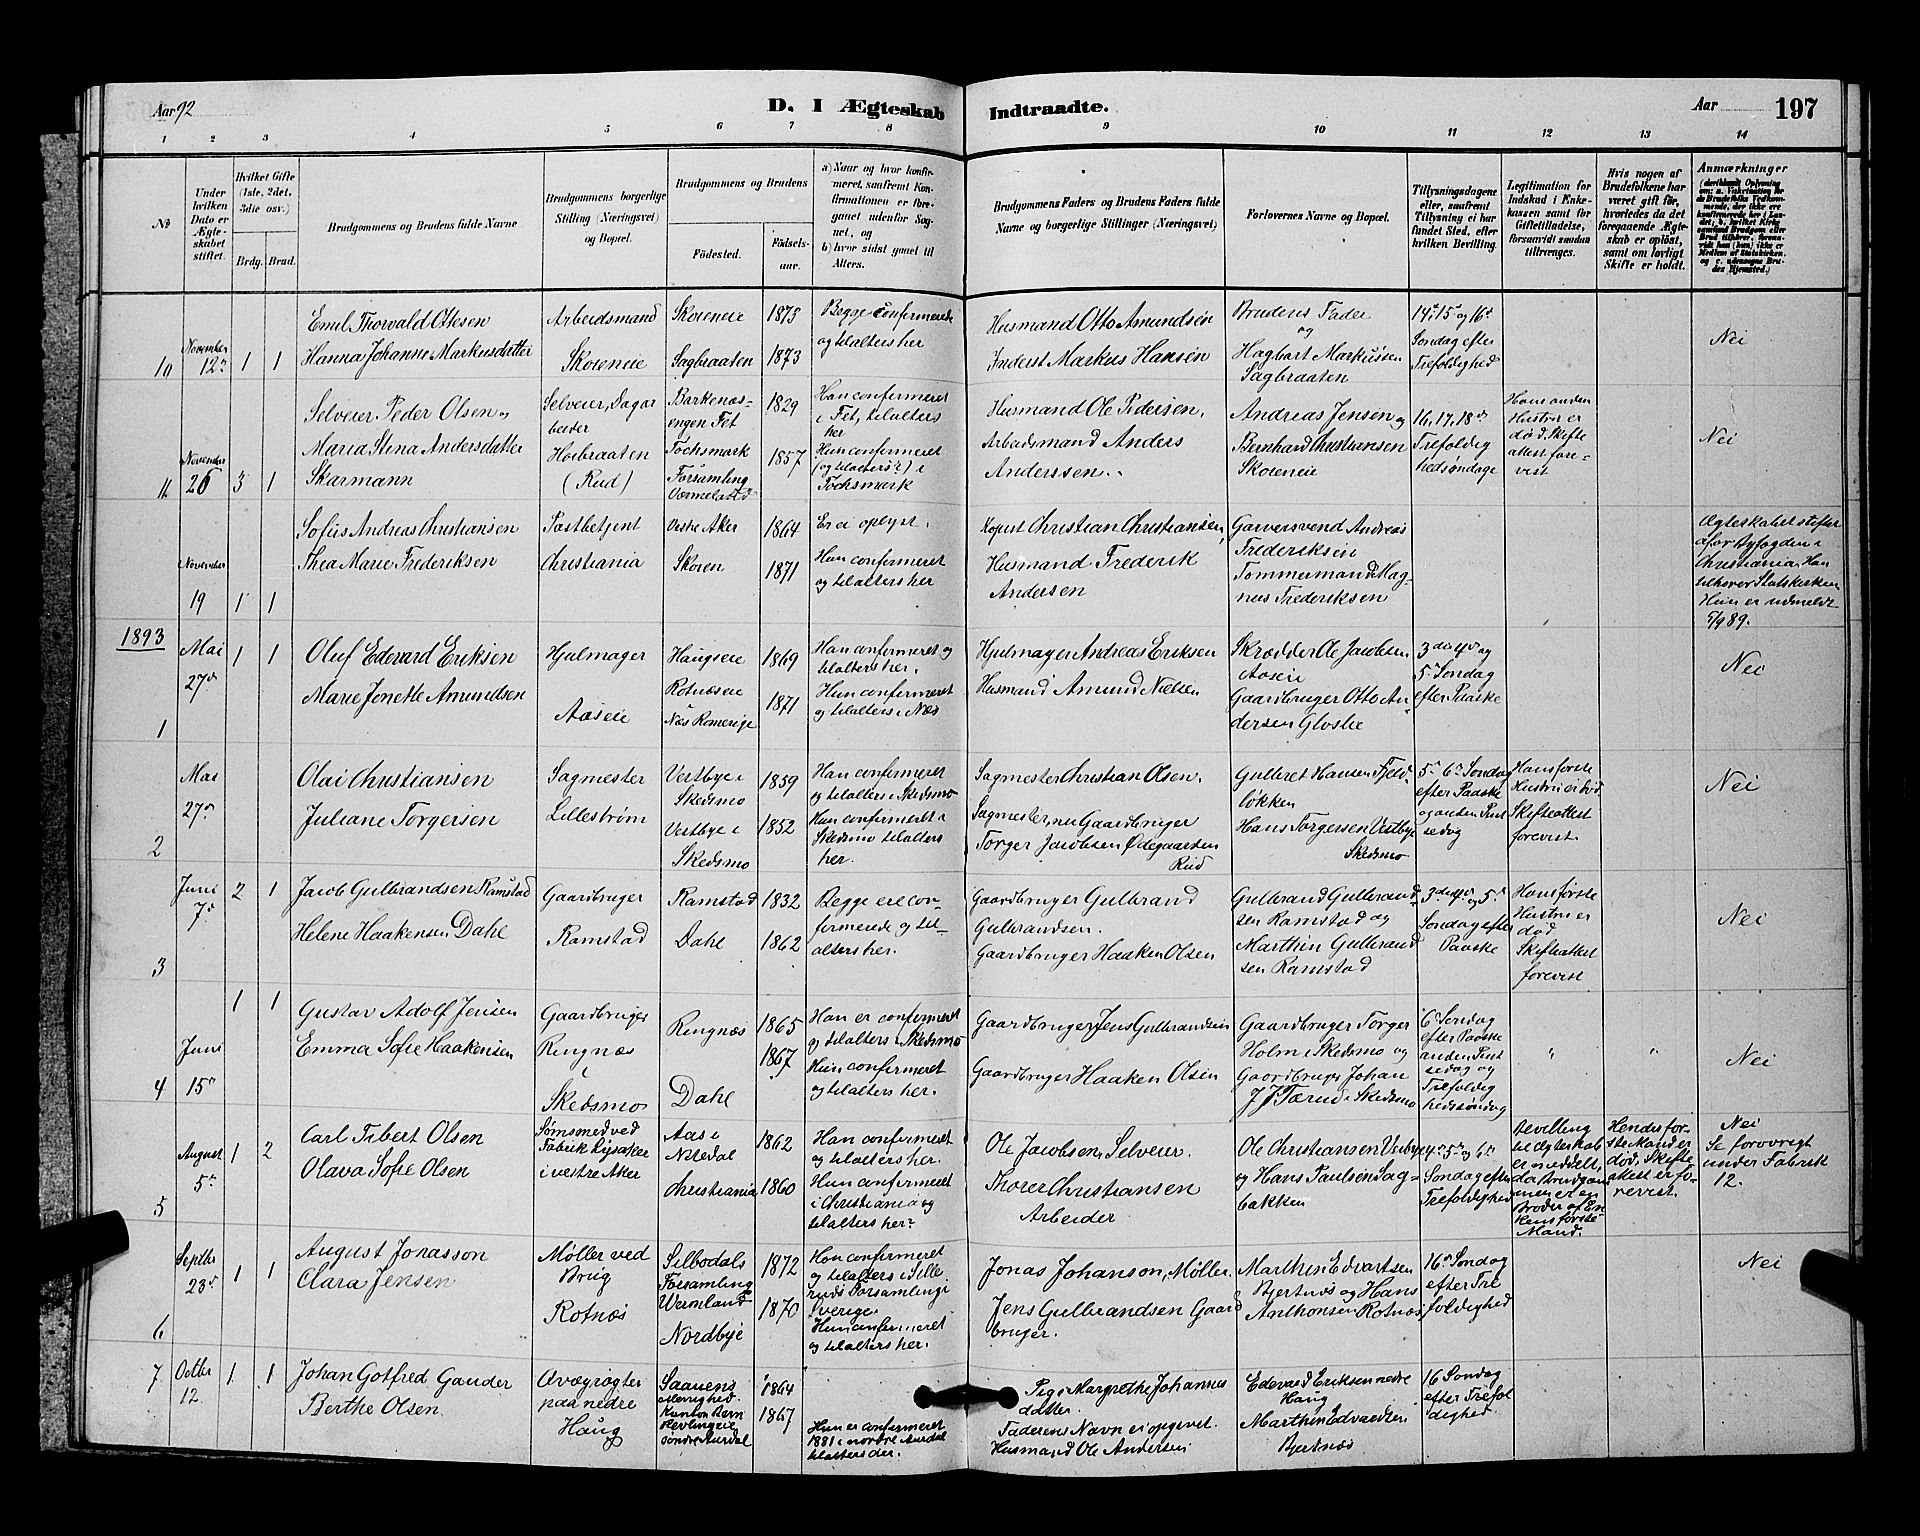 Aar 92
D. I Ægteskab
Indtraadte.
Aar
197
1 2 3 4 5 6 7 8 9 10 11 12 13 14
No
Under hvilken Dato er Ægteskabet stiftet.
Hvilket Gifte (1ste, 2det, 3die osv.)
Brdg. Brud.
Brudgommens og Brudens fulde Navne
Brudgommens borgerlige Stilling (Næringsvei) og Bopæl.
Brudgommens og Brudens
Födested.
Födsels-aar.
a) Naar og hvor konfirmeret, saafremt Konfirmationen er foregaaet udenfor Sognet, og
b) hvor sidst gaaet til Alters.
Brudgommens Faders og Brudens Faders fulde Navne og borgerlige Stillinger (Næringsvei)
Forlovernes Navne og Bopæl.
Tillysningsdagene eller, saafremt Tillysning ei har fundet Sted, efter hvilken Bevilling.
Legitimation for Indskud i Enkekassen samt for Giftetilladelse, forsaavidt saadan tiltrænges.
Hvis nogen af Brudefolkene har været gift för, hvorledes da det foregaaende Ægteskab er oplöst, samt om lovligt Skifte er holdt.
Anmærkninger
10
November 12
1 1
Emil Thorvald Ottesen
Hanna Johanne Markusdatter
Arbeidsmand
Skoreneie
Skoreneie
Sagbraaten
1873
1873
Begge confirmerede
og tilalters her
Husmand Otto Amundsen
Inderst Markus Hansen
Brudens Fader
og
Hagbart Markussen
Sagbraaten
14, 15 og 16
Søndag efter
Trefoldighed
Nei
11
November
26
3 1
Selveier Peder Olsen
Maria Stina Andersdatter
Skarmann
Selveier, Dagar
beider
Høibraaten
(Rud)
Barkenæs-
engen Fet
Fochsmark
Forsamling
Værmeland
1829
1857
Han confirmeret
i Fet, tilalters
her
Hun confirmeret
(og tilalters?) i
Fochsmark
Husmand Ole Pedersen,
Arbeidsmand Anders
Anderssen
Andreas Jensen og
Bernhard Christiansen
Skoreneie
16, 17, 18
Trefoldig
hedsøndage
Hans anden
Hustru er
død, Skifte
attest fore-
vist
Nei
November
19
1 1
Sofus Andreas Christiansen
Thea Marie Frederiksen
Postbetjent
Christiania
Vestre Aker
Skoren
1864
1871
Er ei oplyst.
Hun confirmeret
og tilalters her
Christian Christiansen,
Husmand Frederik
Andersen
Garversvend Andreas
Frederiksen
Tømmermand Mag-
nus Frederiksen
Ægteskabet stiftet
afor Byfogden i
Christiania. Han
tilhører Statskirken
Hun er udmeldt
89.
1893
Mai
27
1
1 1
Oluf Edevard Eriksen
Marie Jonette Amundsen
Hjulmager
Aaseie
Haugseie
Rotnæseie
Næs Romerige
1869
1871
Han confirmeret og
tilalters her.
Hun confirmeret
og tilalters i Næs
Hjulmager Andreas Eriksen
Husmand Amund Nielsen
Skrædder Ole Jacobsen
Aaseie
Gaardbruger Otto An-
dersen Gloslie
3die 4de og
5 Søndag
efter Paaske
Nei
Mai
27
2
Olai Christiansen
Juliane Torgersen
Sagmester
Lillestrøm
Vestbye i
Skedsmo
Vestbye i
Skedsmo
1859
1852
Han confirmeret
og tilalters i Skedsmo
Hun confirmeret i
Skedsmo tilalters
her.
Sagmester Christian Olsen.
Sagmester, nu Gaardbruger
Torger Jacobsen Ødegaarden
Rud
Gulleret Hansen Fjeld-
løkken
Hans Torgersen Vestbye
Skedsmo
5 6 Søndag
efter Paaske
og anden Pint
sedag
Hans første
Hustru er død
Skifteattest
forevist.
Nei
Juni
7
3
2 1
Jacob Gulbrandsen Ramstad
Helene Haakensen Dahl
Gaardbruger
Ramstad
Ramstad
Dahl
1832
1862
Begge ere con-
firmerede og til-
alters her.
Gaardbruger Gulbrand
Gulbrandsen.
Gaardbruger Haaken Olsen
Gulbrand Gulbrand-
sen Ramstad og
Marthin Gulbrand
sen Ramstad
3die 4de og 5
Søndag efter
Paaske
Hans første
Hustru er
død
Skifteattest
forevist
Nei
Juni
15
4
1 1
Gustav Adolf Jensen
Emma Sofie Haakensen
Gaardbruger
Ringnæs
i
Skedsmo
Ringnæs
Dahl
1865
1867
Han er confirmeret
og tilalters i Skedsmo
Hun confirmeret
og tilalters her.
Gaardbruger Jens Gulbrandsen
Gaardbruger Haaken Olsen
Gaardbruger Torger
Holm i Skedsmo og
Gaardbruger Johan
J J Tærud i Skedsmo
6 Søndag
efter Paaske
anden Pint
sedag og
Trefoldig
hedssøndag
"
"
Nei
August
5
5
1 2
Carl Tibert Olsen
Olava Sofie Olsen
Sømsmed ved
Fabrik Lysaker
i vestre Aker
Aas i
Nitedal
Christiania
1862
1860
Han confirmeret
og tilalters her.
Hun confirmeret
i Christiania og
tilalters her
Ole Jacobsen, Selveier.
Thorer Christiansen
Arbeider
Ole Christiansen Vestbye
og Hans Paulsen Sag-
bakken
4 5 og 6
Søndag efter
Trefoldighed
Bevilling
til Ægteskab
er meddelt,
da Brudgom
men er en
Broder af En
kens første
Mand.
Hendes før-
ste Mand er
død. Skifte
attest er fo-
revist.
Nei
Se forøvrigt
under Fabrik
12.
Septbr
23
6
1 1
August Jonasson
Clara Jensen
Møller ved
Brug
Rotnæs
Silbodals
Forsamling
Wermland
Nordbye
1872
1870
Han confirmeret
og tilalters i Sille
ruds Forsamling i
Sverige.
Hun confirmeret
og tilalters her.
Jonas Johanson, Møller.
Jens Gulbrandsen Gaard
bruger.
Marthin Edvartsen
Bjertnæs og Hans
Anthonsen Rotnæs
16 Søndag
efter Tre
foldighed
Nei
7
Octbr
12
1 1
Johan Gotfred Gander
Berthe Olsen
Qvægrøgter
paa nedre
Haug
Saanens
Menighed
Kanton Bern
Revlingeie
søndre Aurdal
1864
1867
Hun er confirmeret
1881 i nordre Aurdal
tilalters der.
Pige Margrethe Johannes
datter.
Faderens Navn ei opgivet.
Husmand Ole Andersen
Edevard Eriksen nedre
Haug
Marthin Edvardsen
Bjertnæs
16 Søndag
efter Trefol
dighed.